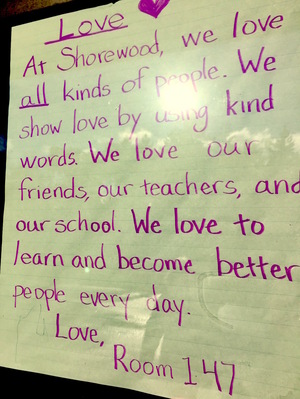 Love
At Shorewood, we love
all kinds of people. We
show love by using kind
words. We love our
friends, our teachers, and
our school. We love to
learn and become better
people every day.
Love,
Room 147